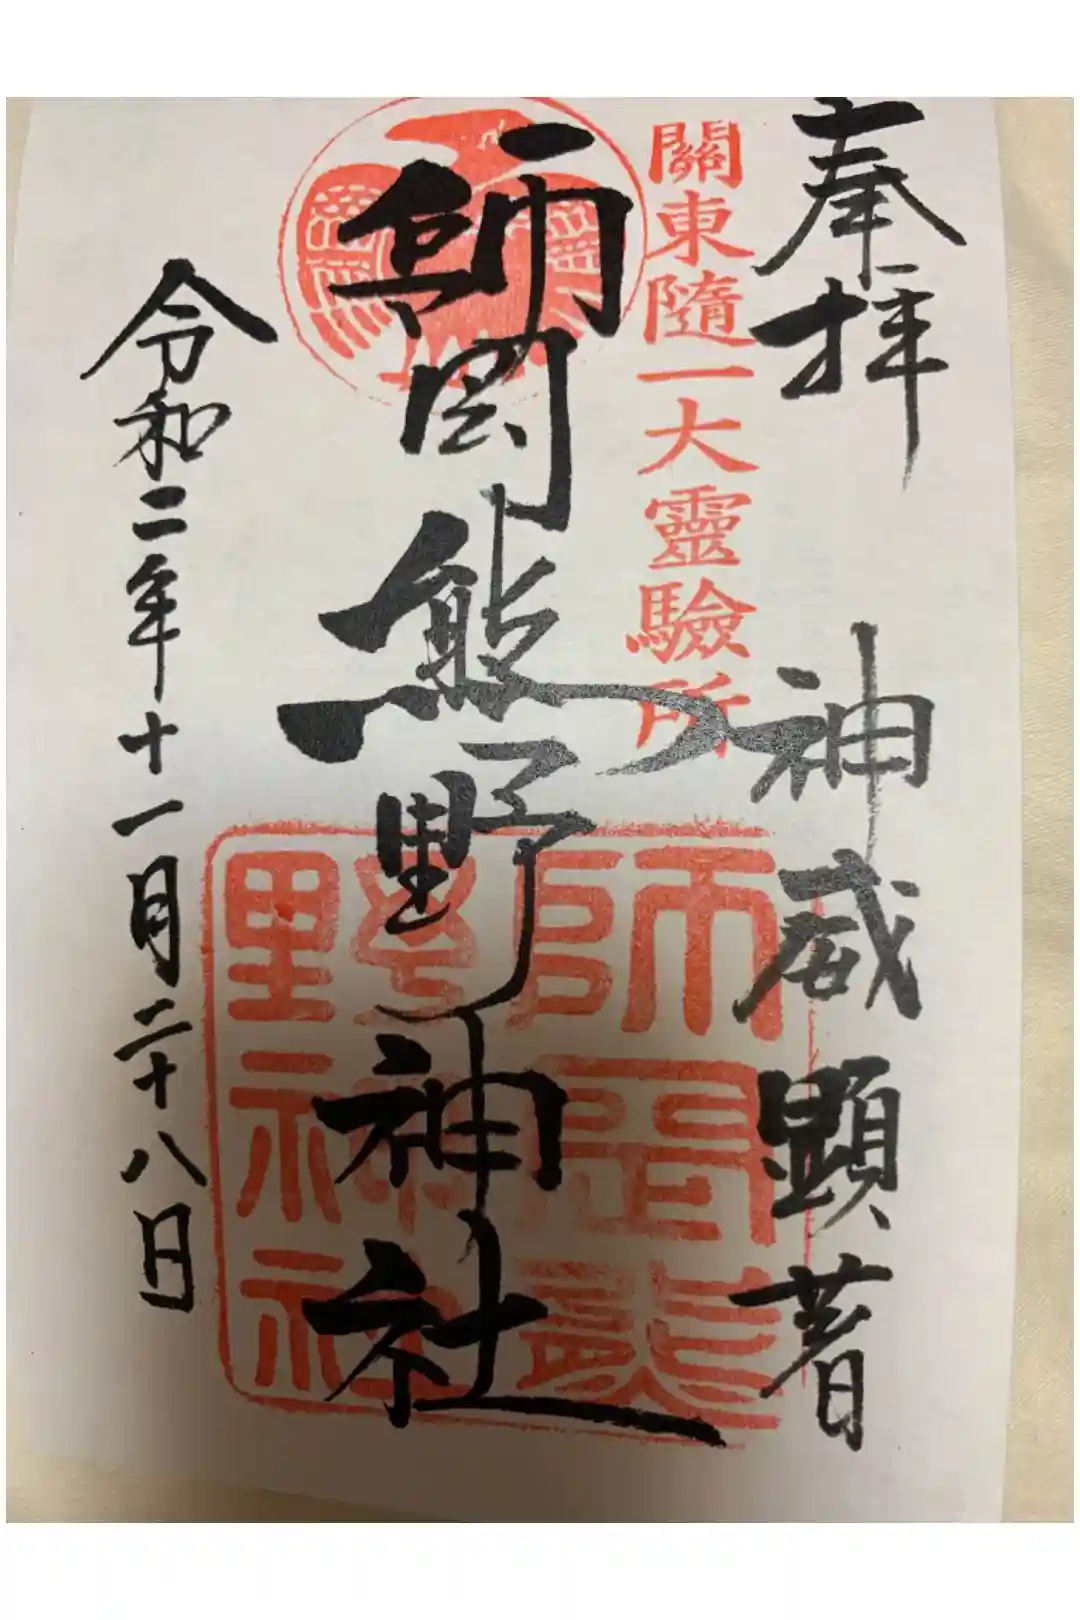 奉拝
神威顕著
關東隨一大靈驗所
師岡熊野神社
師岡熊
野神社
令和二年十一月二十八日